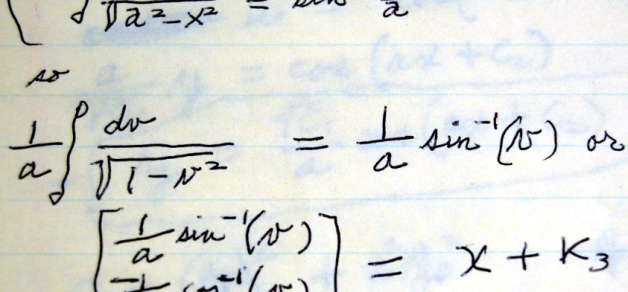 ∫ / √(a²-x²) = sin a
so
1/a ∫ dv/√(1-v²) = 1/a sin⁻¹(v) or
[1/a sin⁻¹(v)
-1 cos⁻¹(v)] = x + K₃